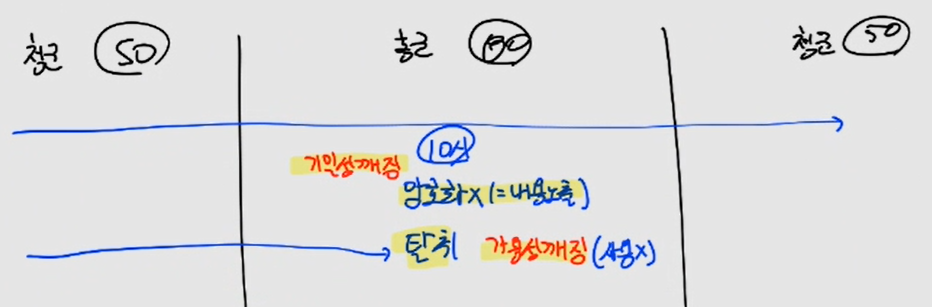 청군 50 홍군 100 청군 50
10시
기밀성깨짐
암호화X (=내용노출)
탈취 가용성깨짐 (사용X)